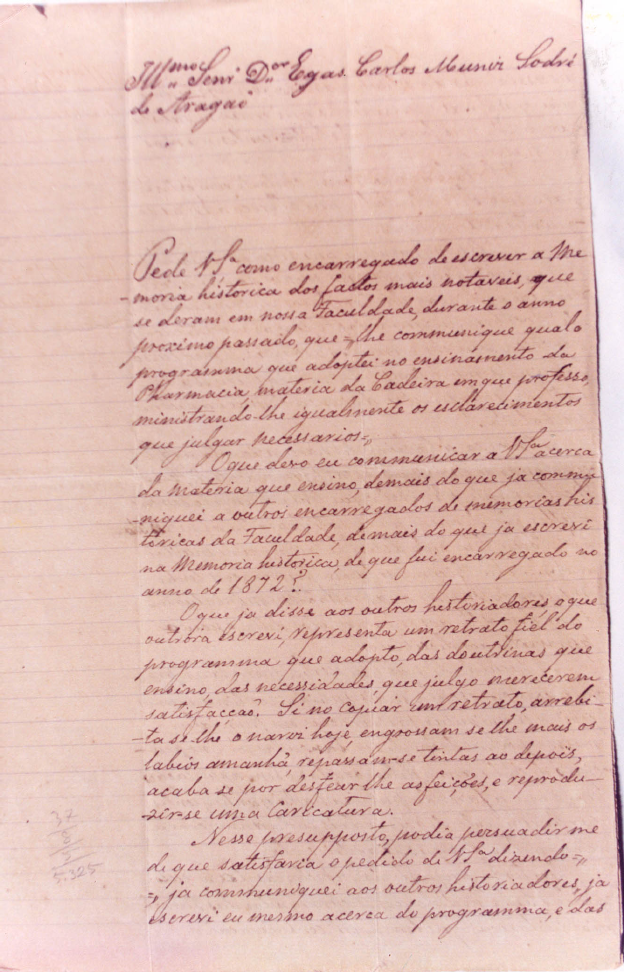 Ill.mo Senr Dor Egas Carlos Muniz Sodré
de Aragaõ
Pede V Sa como encarregado de escrever a Me
-moria historica dos factos mais notaveis, que
se deram em nossa Faculdade, durante o anno
proximo passado, que =, lhe communique qual o
programma que adoptei no ensinamento da
Pharmacia, materia da Cadeira em que professo,
ministrando-lhe igualmente os esclarecimentos
que julgar necessarios =,,
O que devo eu communicar a V Sa acerca
da materia que ensino, demais do que ja commu
-niquei a outros encarregados de memorias his
-toricas da Faculdade, demais do que ja escrevi
na Memoria historica, de que fui encarregado no
anno de 1872?.
O que ja disse aos outros historiadores, o que
outrora escrevi, representa um retrato fiel do
programma que adopto, das doutrinas que
ensino, das necessidades, que julgo merecerem
satisfacçaõ. Si no copiar um retrato, arrebi-
ta se-lhe o nariz hoje, engrossam se lhe mais os
labios amanhã, repassam-se tintas ao depois,
acaba se por desfear lhe as feições, e reprodu-
-zir-se uma caricatura.
Nesse presupposto, podia persuadir me
de que satisfaria o pedido de V Sa dizendo =,,
=,, ja communiquei aos outros historiadores, ja
escrevi eu mesmo acerca do programma, e das